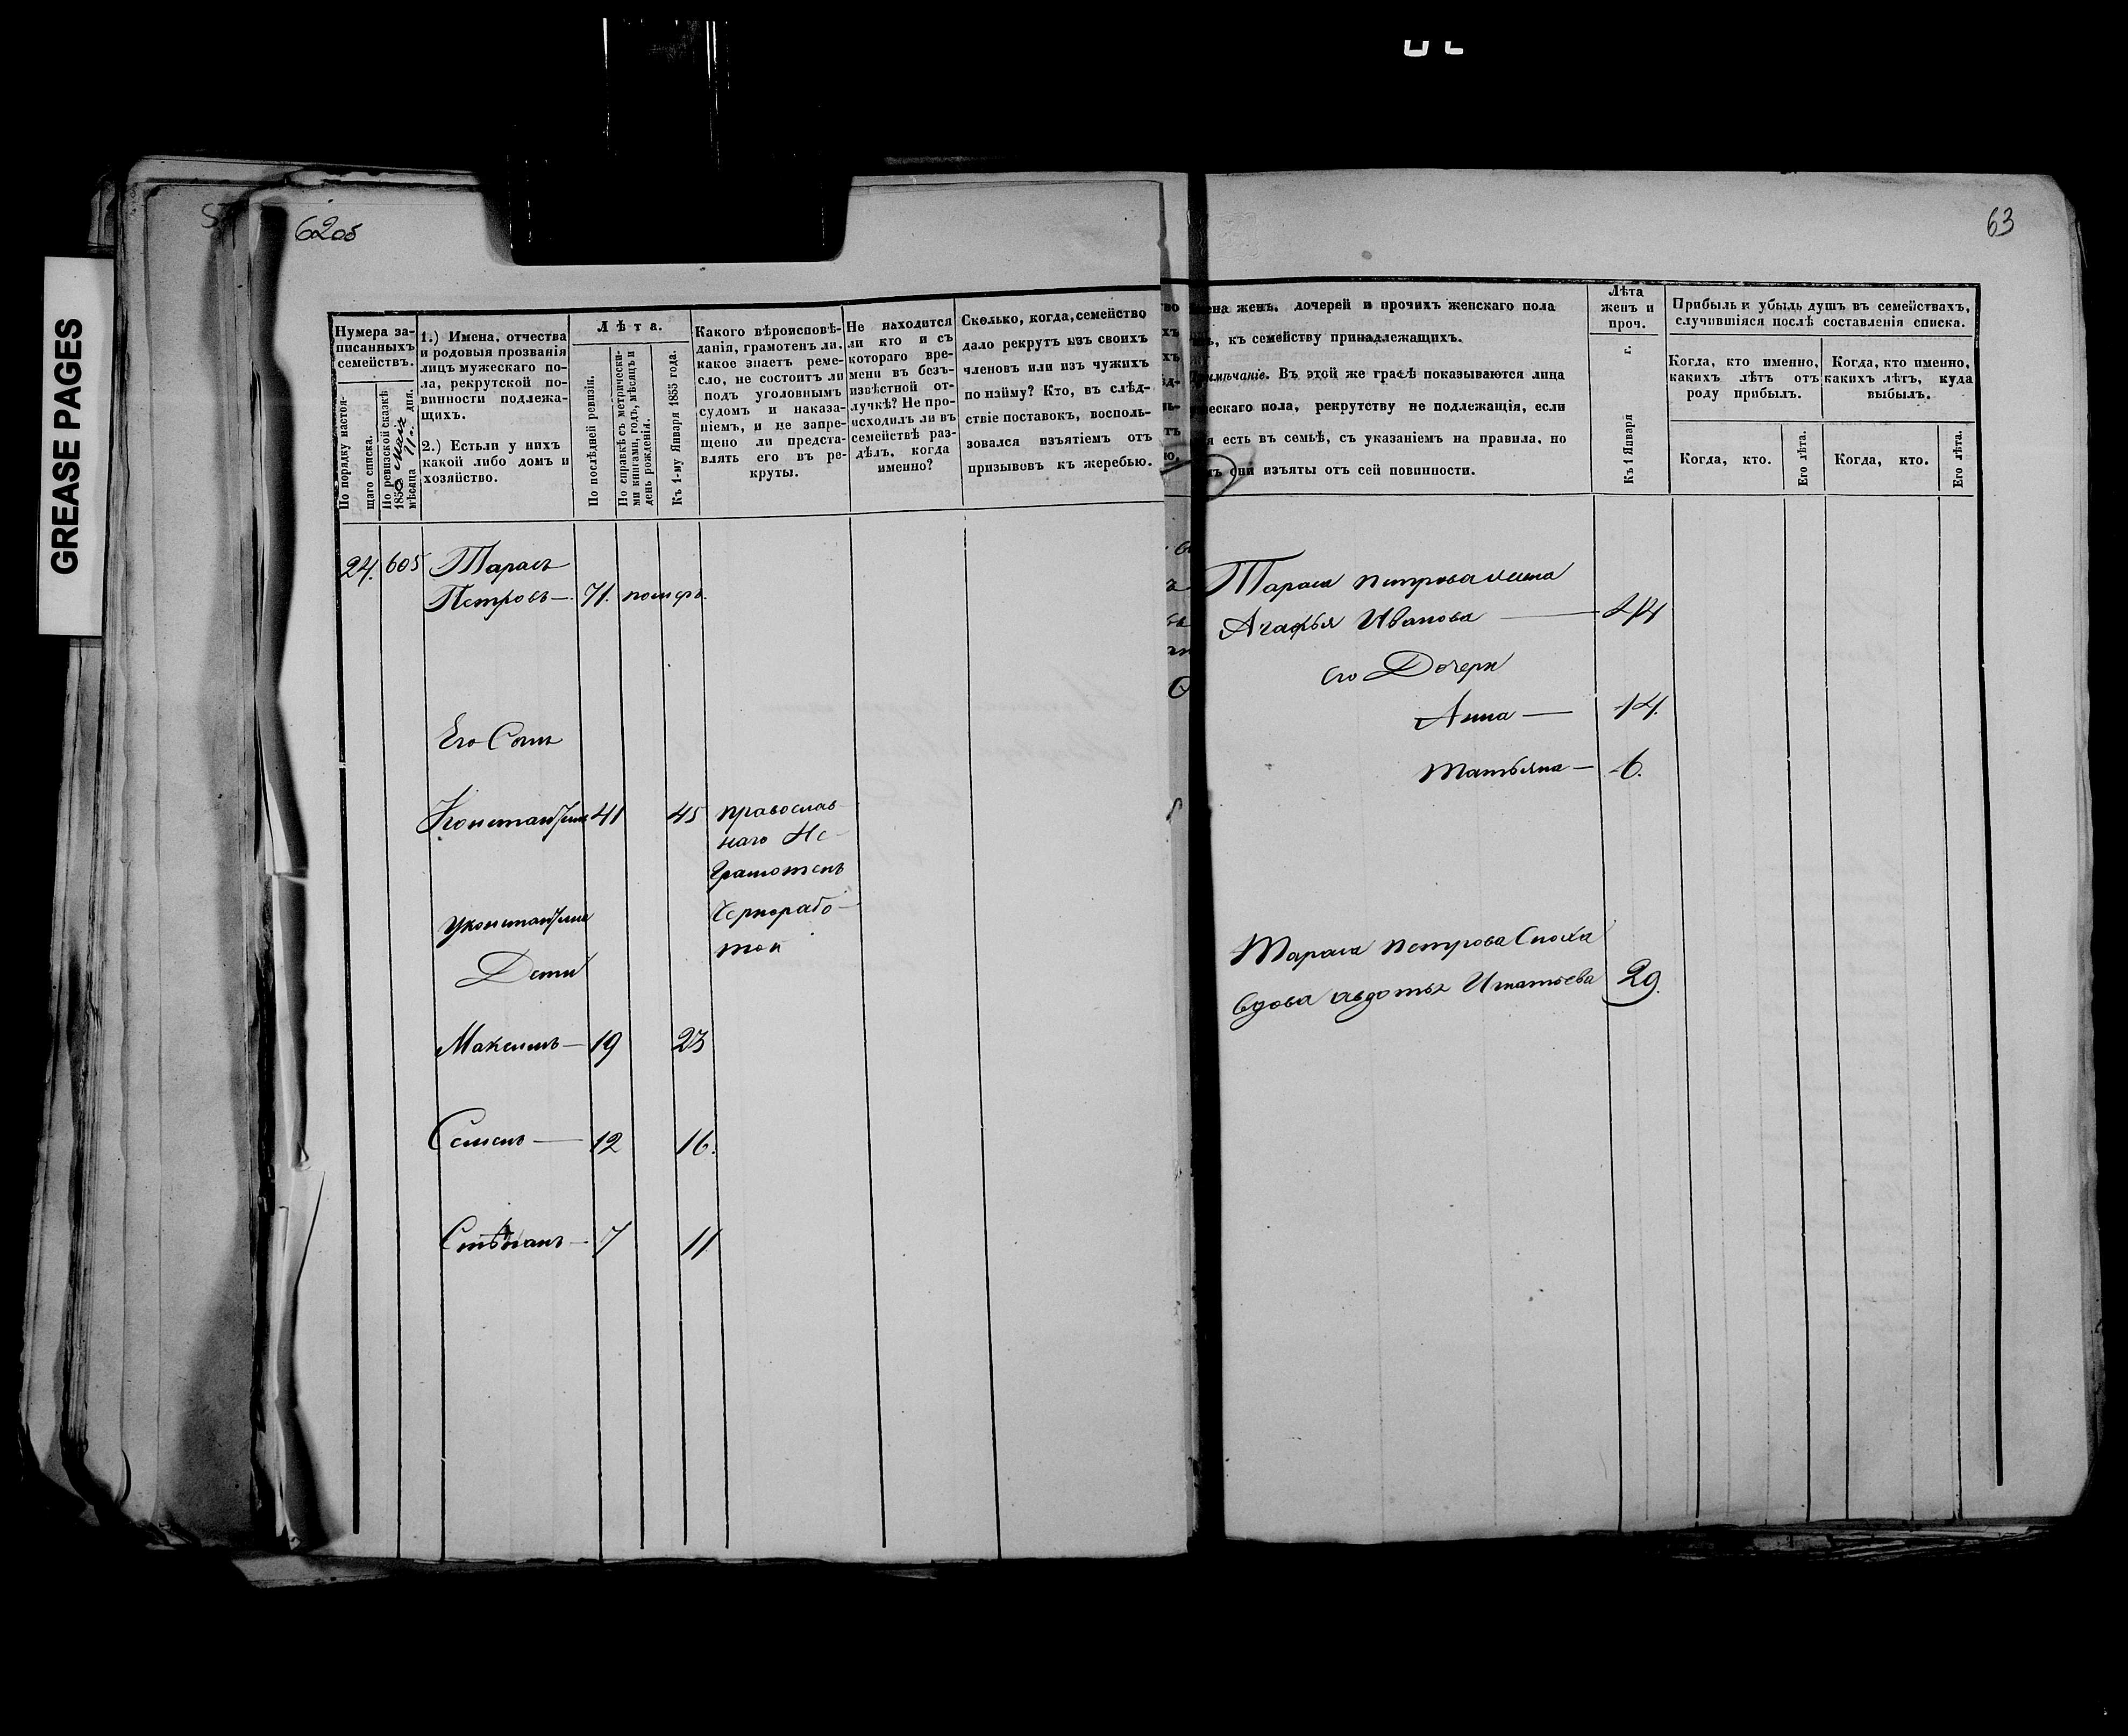 GREASE PAGES
62об
63
Нумера за-
писанныхъ
семействъ.
По порядку настоя-
щаго списка.
По ревизской сказкѣ
1850
мѣсяца 11го дня.
1.) Имена, отчества
и родовыя прозванія
лицъ мужескаго по-
ла, рекрутской по-
винности подлежа-
щихъ.
2.) Естьли у нихъ
какой либо домъ и
хозяйство.
Лѣта.
По послѣдней ревизіи.
По справкѣ съ метрически-
ми книгами, годъ, мѣсяцъ и
день рожденія.
Къ 1-му Января 1855 года.
Какого вѣроисповѣ-
данія, грамотенъ ли,
какое знаетъ реме-
сло, не состоитъ ли
подъ уголовнымъ
судомъ и наказа-
ніемъ, и не запре-
щено ли предста-
влять его въ ре-
круты.
Не находится
ли кто и съ
котораго вре-
мени въ безъ-
извѣстной от-
лучкѣ? Не про-
исходилъ ли въ
семействѣ раз-
дѣлъ, когда
именно?
Сколько, когда, семейство
дало рекрутъ изъ своихъ
членовъ или изъ чужихъ
по найму? Кто, въ слѣд-
ствіе поставокъ, восполь-
зовался изъятіемъ отъ
призывовъ къ жеребью.
ена женъ, дочерей и прочихъ женскаго пола
, къ семейству принадлежащихъ.
Примѣчаніе. Въ этой же графѣ показываются лица
ческаго пола, рекрутству не подлежащія, если
я есть въ семьѣ, съ указаніемъ на правила, по
мъ они изъяты отъ сей повинности.
Лѣта
женъ и
проч.
Къ 1 Января г.
Прибыль и убыль душъ въ семействахъ,
случившіяся послѣ составленія списка.
Когда, кто именно,
какихъ лѣтъ отъ
роду прибылъ.
Когда, кто именно,
какихъ лѣтъ, куда
выбылъ.
Когда, кто.
Его лѣта.
Когда, кто.
Его лѣта.
24. 605 Тарасъ
Петровъ — 71. померъ.
Его Сынъ
Константинъ 41 45 православ-
наго Не-
Грамотенъ
Чернорабо-
той
У Константина
Дети
Максимъ — 19 23
Семенъ — 12 16.
Стѣпанъ — 7 11
Тараса Петрова жена
Агафья Иванова — 44
Его Дочери
Анна — 14.
Татьяна — 6.
Тараса Петрова Сноха
вдова авдотья Игнатьева 29.